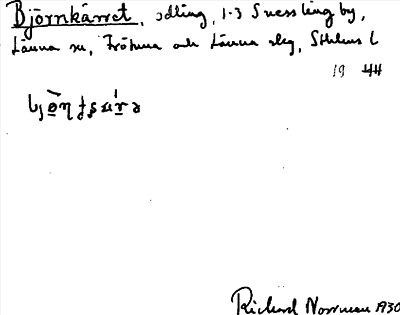 Björnkärret, odling, 1-3 Snesslingby,
Länna sn, Frötuna och Länna skg, Sthlms l
19 44
Richard Norrman 1930